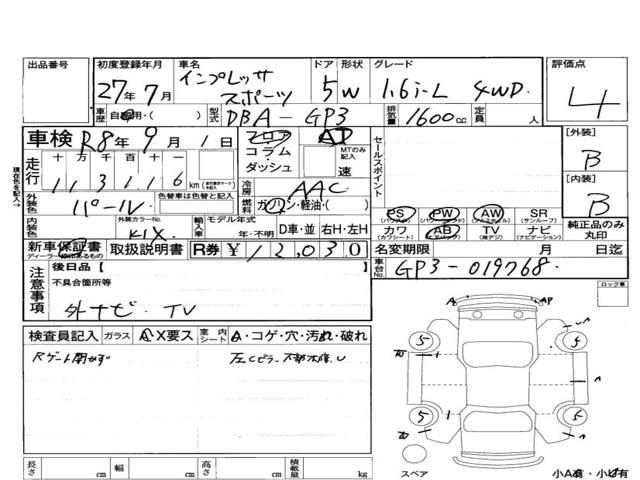 出品番号 初度登録年月 車名 ドア 形状 グレード 評価点
27年 7月 インプレッサ スポーツ 5 W 1.6i-L 4WD 4
車歴 自家用・( ) 型式 DBA-GP3 排気量 1600cc 定員 人
車検 R8年 9月 1日 フロア コラム・ダッシュ AT MTのみ記入 速 セールスポイント [外装] B
走行 十 万 千 百 十 一 km
113116 冷房 AAC [内装] B
外装色 パール 色替車は色替と記入 燃料 ガソリン・軽油・( )
PS (パワステ) PW (パワーウィンド) AW (アルミホイル) SR (サンルーフ)
カワ (カワシート) AB (エアバック) TV (地デジ) ナビ (ナビゲーション) 純正品のみ丸印
内装色 外装カラーNo. K1X 輸入車 モデル年式 年・不明 D車・並 右H・左H
新車保証書 ディーラー印のあるもの 取扱説明書 R券 ¥12,030 名変期限 月 日迄
現在色を記入→
車台No. GP3-019768
注意事項 後日品【 】
不具合箇所等
外ナビ・TV
ロック車
検査員記入 ガラス A・X要ス 室内シート A・コゲ・穴・汚れ・破れ
Rゲート開かず
5 5
5 5
スペア 小A有・小U有
長さ cm 幅 cm 高さ cm 積載量 kg